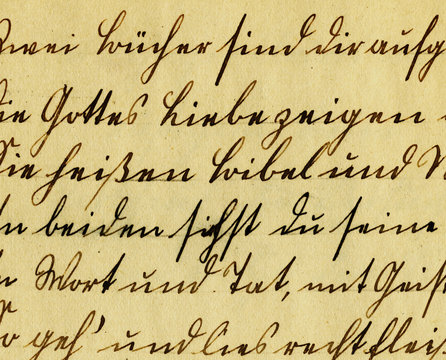 Zwei Bücher sind dir aufg
die Gottes Liebe zeigen
Sie heißen Bibel und N
In beiden siehst du seine
In Wort und Tat, mit Geist
So geh' und lies recht fleis